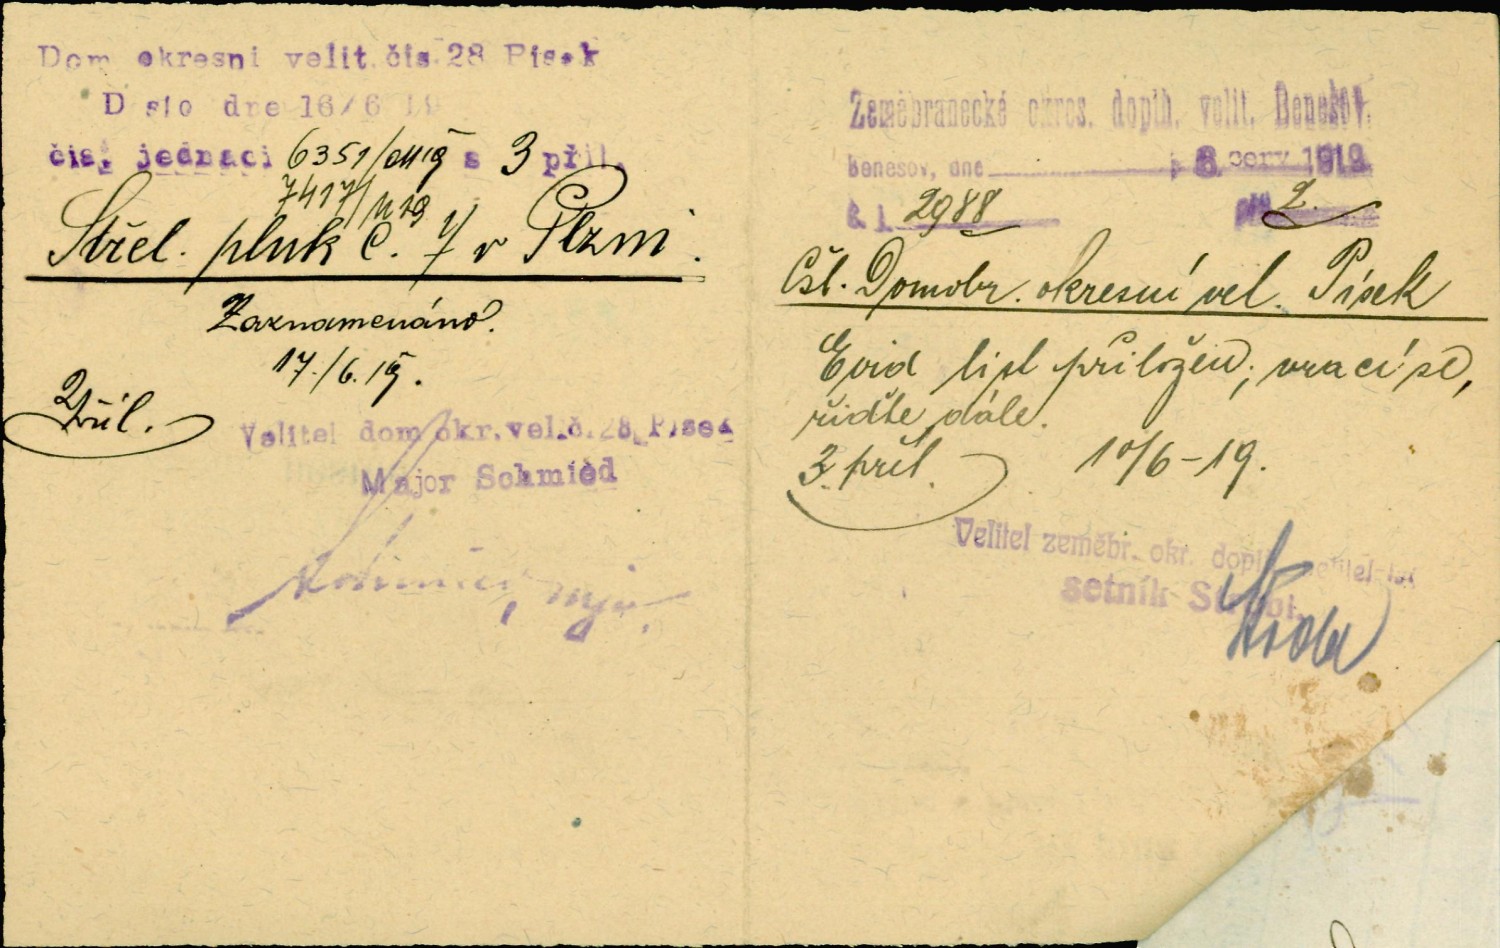 Dom okresni velit. čis. 28 Pisek
Došlo dne 16/6 19
čis. jednaci 6351/ 19 s 3 příl.
7417/ 19
Střel. pluk č. v Plzni.
Zaznamenáno.
17./6. 19.
2 příl.
Velitel dom okr. vel. č. 28, Pisek
Major Schmied
Zeměbranecké okres. dopln. velit. Benešov.
Benešov, dne 8. červ. 1919
č. j. 2988 příl. 2.
Čsl. Domobr. okresní vel. Písek
Evid list přiložen, vrací se,
řiďte dále.
3. příl. 10/6-19.
Velitel zeměbr. okr. dopln. velitelství
setník